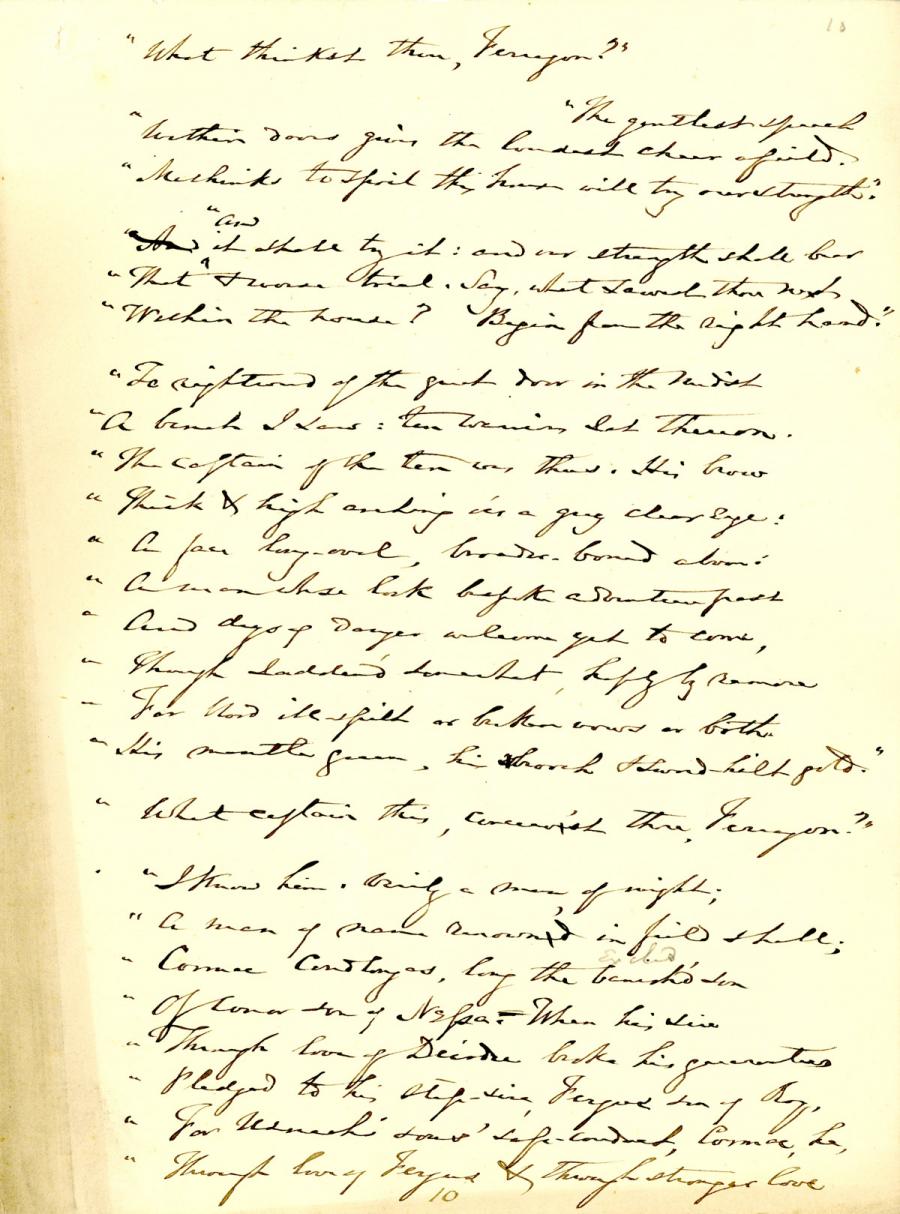 "What thinkst thou, Ferragon?"
"The gentlest speech
"Within doors gives the loudest cheer afield.
"Methinks to spoil this house will try our strength."
"and
"And it shall try it: and our strength shall bear
"That & worse trial. Say, what sawest thou next
"Within the house? Begin from the right hand."
"To rightward of the great door in the midst
"A bench I saw: ten warriors sat thereon.
"The captain of the ten was thus. His brow
"Thick & high arching o'er a grey clear eye:
"A face long-oval, broader-boned above:
"A man whose look bespoke adventure past
"And days of danger welcome yet to come,
"Though sadden'd somewhat, haply by remorse
"For blood ill-spilt or broken vows or both.
"His mantle green, his brooch & sword-hilt gold."
"What captain this, conceiv'st thou, Ferragon?"
"I know him. Verily a man of might;
"A man of name renown'd in field & hall;
Exiled
"Cormac Condlongas, long the banish'd son
"Of Conor son of Nessa. When his sire
"Through love of Deirdre broke his guarantees
"Pledged to his step-sire, Fergus son of Roy,
"For Usnach's sons' safe-conduct, Cormac, he,
"Through love of Fergus & through stronger love
10